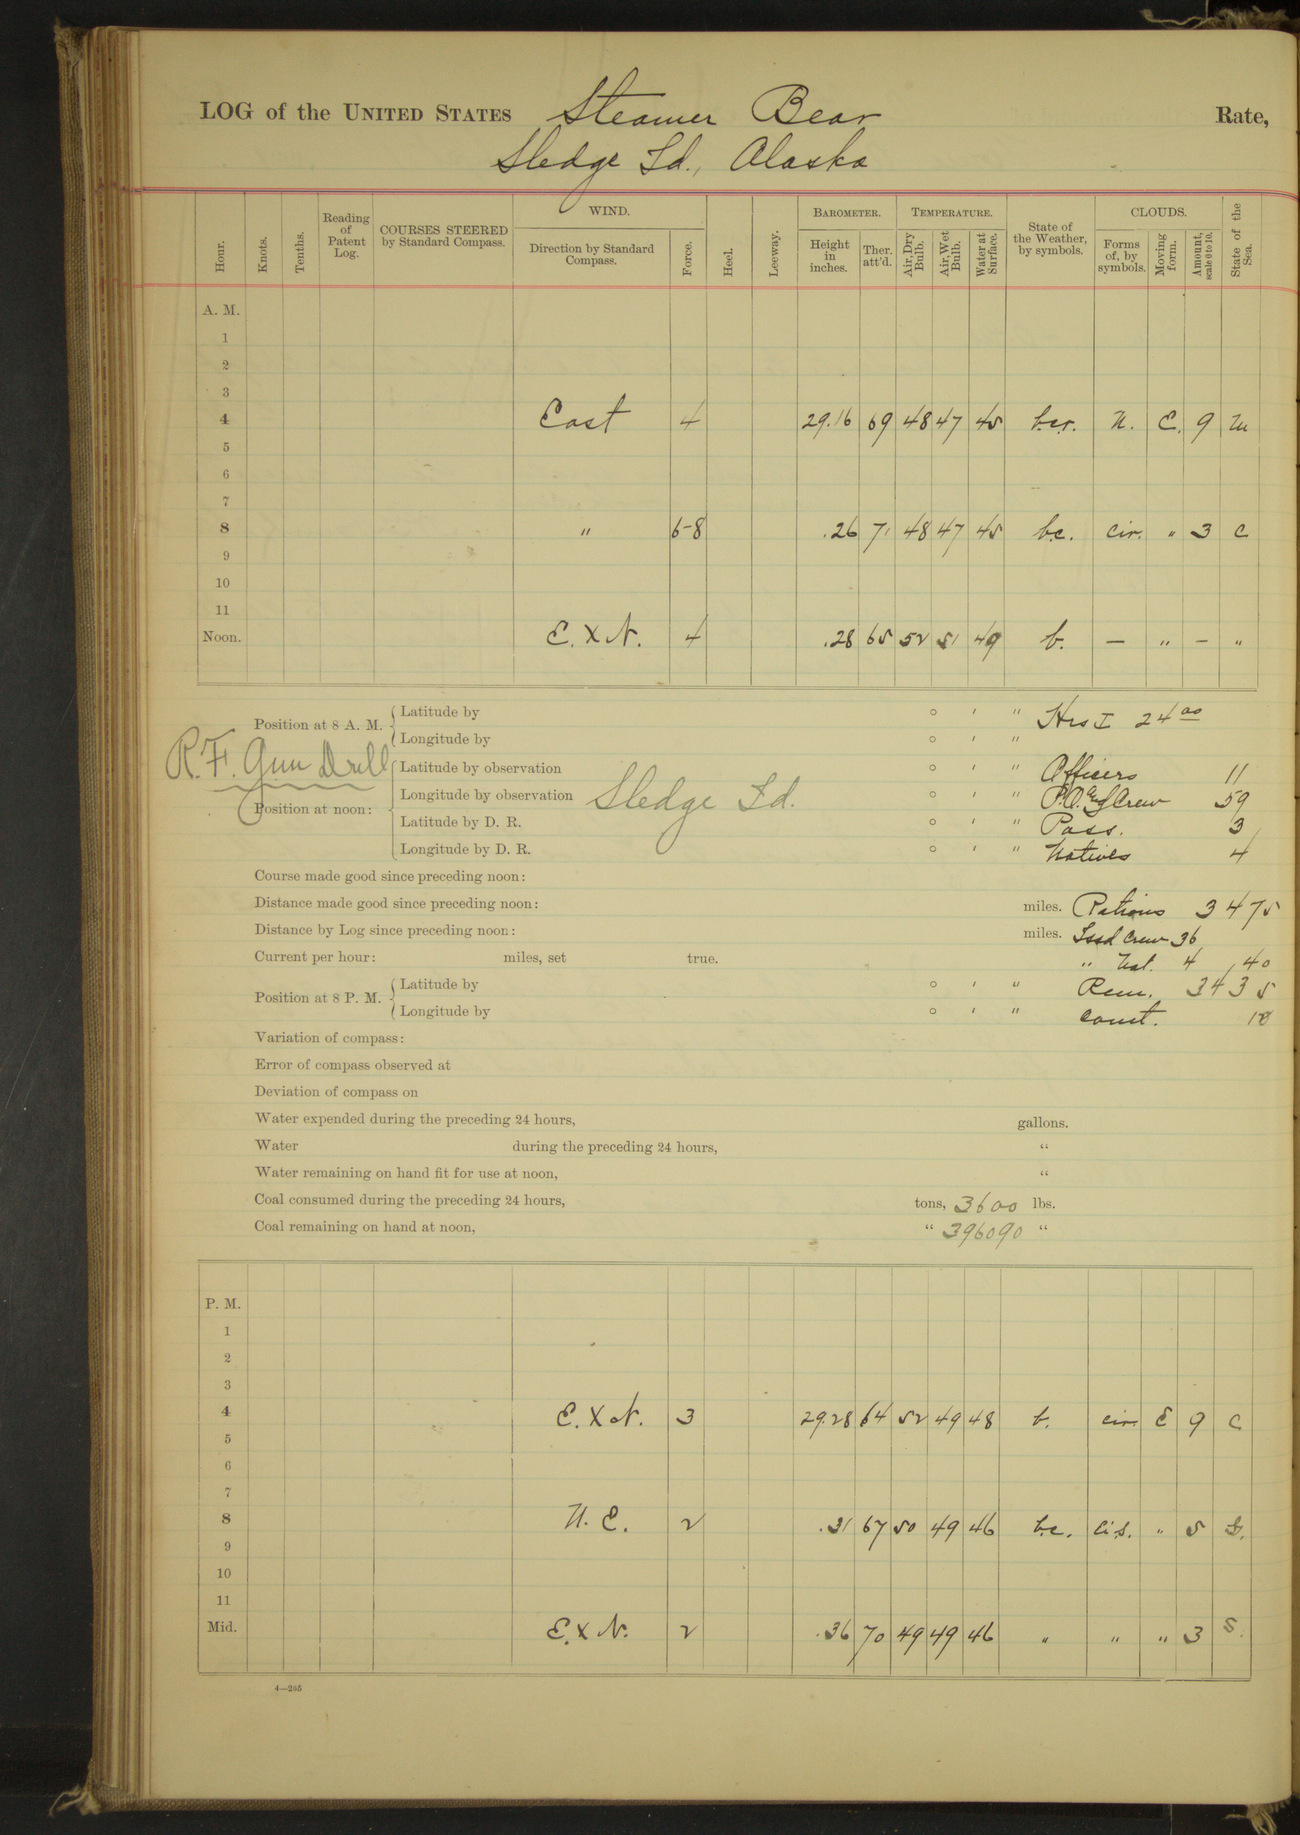 LOG of the UNITED STATES Steamer Bear Rate,
Sledge Id., Alaska
Hour. Knots. Tenths. Reading of Patent Log. COURSES STEERED by Standard Compass. WIND. Direction by Standard Compass. Force. Heel. Leeway. BAROMETER. Height in inches. Ther. att'd. TEMPERATURE. Air, Dry Bulb. Air, Wet Bulb. Water at Surface. State of the Weather, by symbols. CLOUDS. Forms of, by symbols. Moving form. Amount, scale 0 to 10. State of the Sea.
A. M.
1
2
3
4 East 4 29.16 69 48 47 45 b.c.r. N. E. 9 M
5
6
7
8 " 6-8 .26 71 48 47 45 b.c. cir. " 3 C
9
10
11
Noon. E. X N. 4 .28 65 52 51 49 b. — " — "
Position at 8 A. M. Latitude by ° ′ ″ Hrs I 24 00
Longitude by ° ′ ″
R. F. Gun Drill
Position at noon: Latitude by observation ° ′ ″ Officers 11
Longitude by observation Sledge Id. ° ′ ″ P.O. and Crew 59
Latitude by D. R. ° ′ ″ Pass. 3
Longitude by D. R. ° ′ ″ Natives 4
Course made good since preceding noon:
Distance made good since preceding noon: miles. Rations 3475
Distance by Log since preceding noon: miles. Issd Crew 36
Current per hour: miles, set true. " Nat. 4 40
Position at 8 P. M. Latitude by ° ′ ″ Rem. 3435
Longitude by ° ′ ″ Comt.
Variation of compass:
Error of compass observed at
Deviation of compass on
Water expended during the preceding 24 hours, gallons.
Water during the preceding 24 hours, "
Water remaining on hand fit for use at noon, "
Coal consumed during the preceding 24 hours, tons, 3600 lbs.
Coal remaining on hand at noon, " 396090 "
P. M.
1
2
3
4 E. X N. 3 29.28 64 52 49 48 b. cir. E 9 C
5
6
7
8 N. E. 2 .31 67 50 49 46 b.c. ci.s. " 5 S.
9
10
11
Mid. E. X N. 2 .36 70 49 49 46 " " " 3 S.
4—205